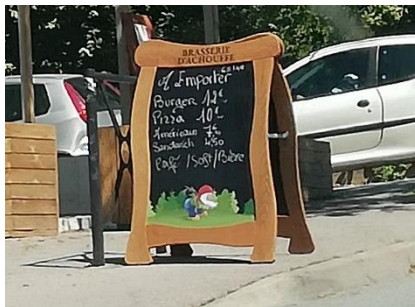 BRASSERIE
D'ACHOUFFE
A Emporter
Burger 12€
Pizza 10€
Américain 7€
Sandwich 4,50
Café / Soft / Bière